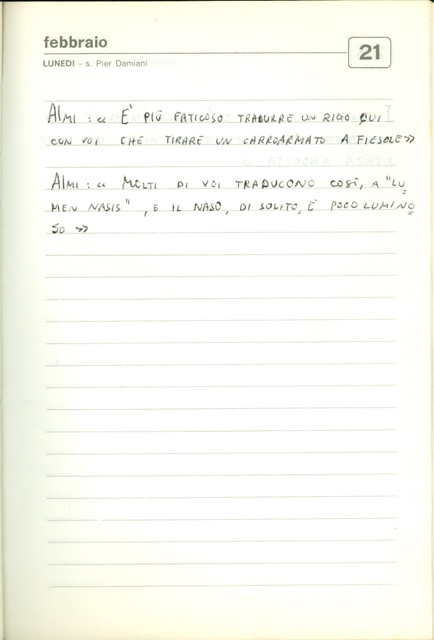 febbraio
21
LUNEDI - s. Pier Damiani
ALMI : « E' PIÙ FATICOSO TRADURRE UN RIGO QUI
CON VOI CHE TIRARE UN CARROARMATO A FIESOLE»
ALMI : « MOLTI DI VOI TRADUCONO COSÌ, A "LU
MEN NASIS" , E IL NASO, DI SOLITO, È POCO LUMINO
SO »